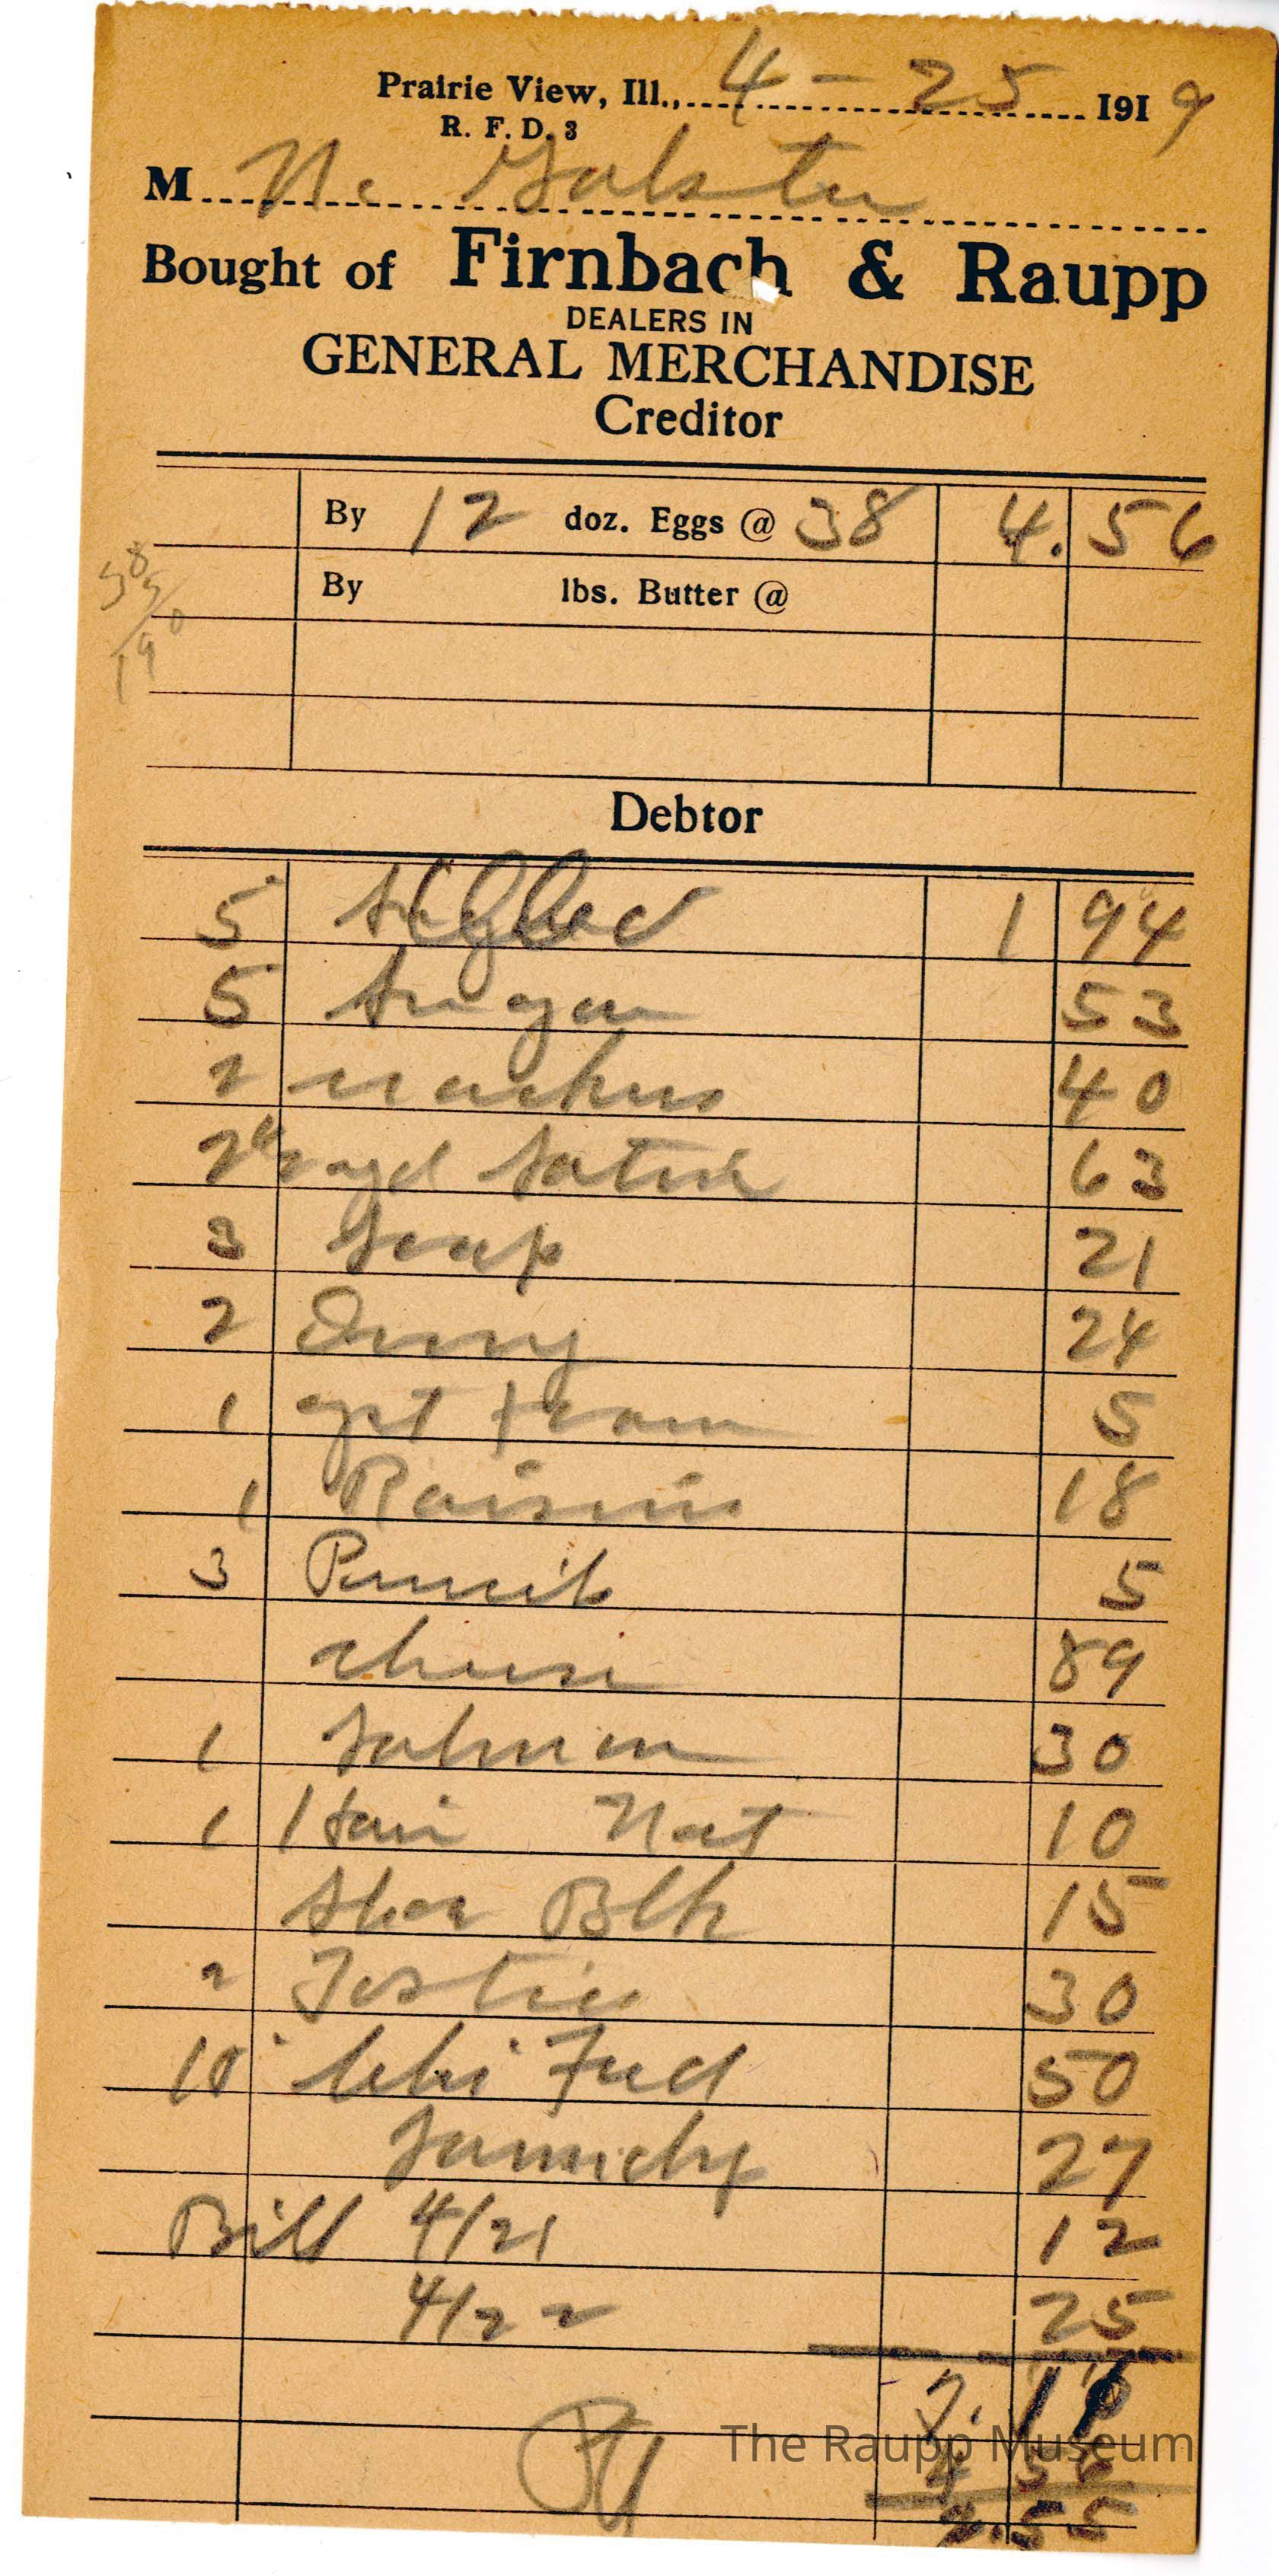 Prairie View, Ill., 4 - 25 1919
R. F. D. 3
M
Bought of Firnbach & Raupp
DEALERS IN
GENERAL MERCHANDISE
Creditor
By 12 doz. Eggs @ 38 4. 56
By lbs. Butter @
38
5
190
Debtor
5 1 94
5 Sugar 53
2 40
yd 63
3 Soap 21
2 24
1 5
1 Raisins 18
3 Pencils 5
cheese 89
1 Salmon 30
1 Hair Net 10
Shoe Blk 15
2 30
10 Chi Feed 50
27
Bill 4/21 12
4/22 25
7. 11
4 56
2.55
The Raupp Museum